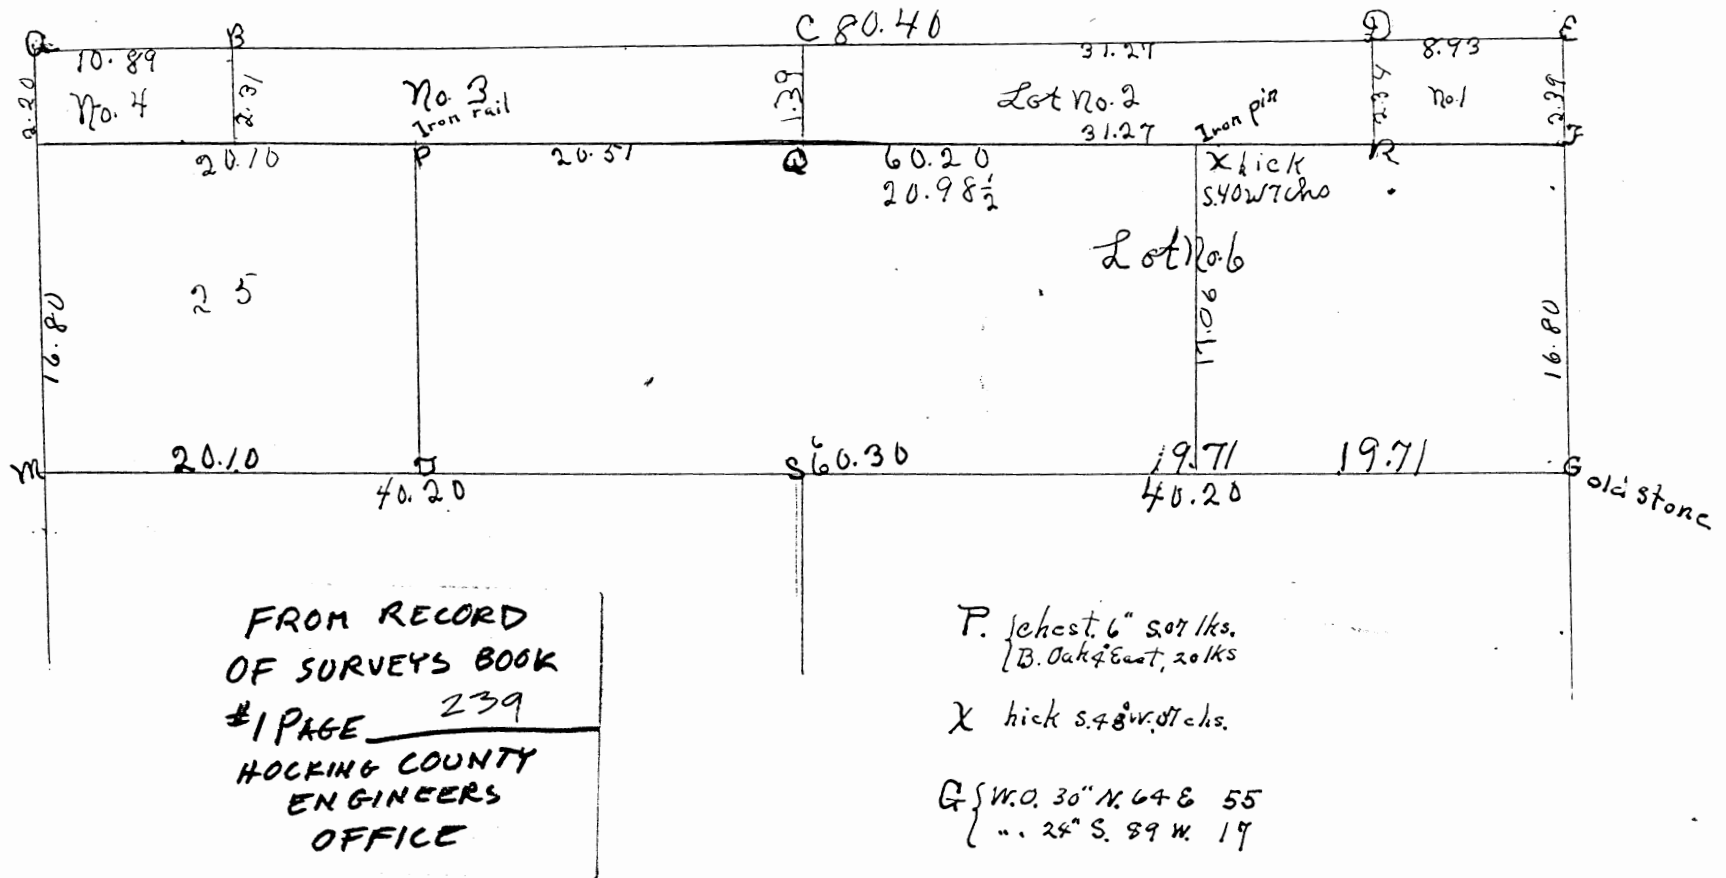 a B C 80.40 D E
10.89 31.27 8.93
2.20 No. 4 2.31 No. 3 1.39 Lot No. 2 2.34 No. 1 2.39
Iron rail 31.27 Iron pin
20.10 P 20.51 Q 60.20 X hick R F
20.98½ S.40W7chs
Lot No. 6
2 5
16.80 17.06 16.80
M 20.10 J S 60.30 19.71 19.71 G old stone
40.20 40.20
FROM RECORD
OF SURVEYS BOOK
#1 PAGE 239
HOCKING COUNTY
ENGINEERS
OFFICE
P. {chest. 6" S.07 lks.
{B. Oak 4" East, 20 lks
X hick S.48°W.07 chs.
G { W.O. 30" N. 64 E 55
{ ". 24" S. 89 W. 17